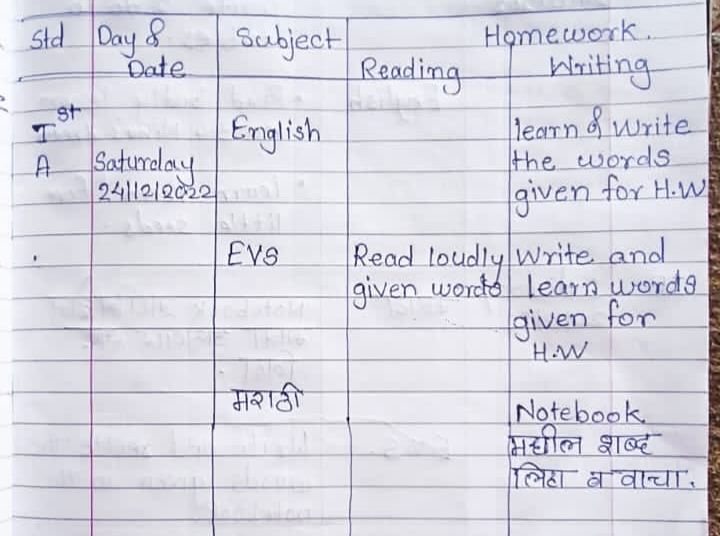 Std Day & Subject Homework.
Date Reading Writing
Ist English learn & write
A Saturday the words
24/12/2022 given for H.W
EVS Read loudly Write and
given words learn words
given for
H.W
मराठी Notebook
मधील शब्द
लिहा व वाचा.